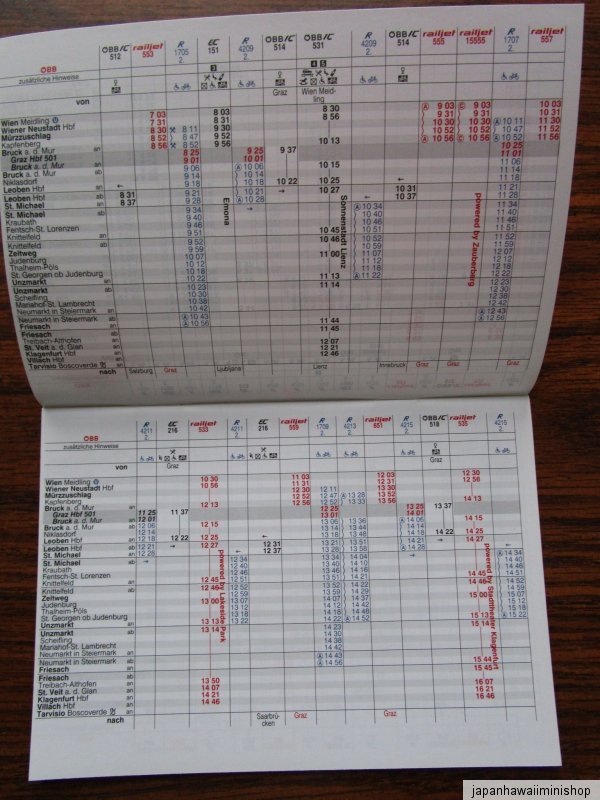 ÖBB/C 512 railjet 553 R 1705 2. EC 151 R 4209 2. ÖBB/C 514 ÖBB/C 531 R 4209 2. ÖBB/C 514 railjet 555 railjet 15555 R 1707 2. railjet 557
ÖBB
zusätzliche Hinweise
3 4 5
von Graz Wien Meidling
Wien Meidling 7 03 8 03 8 30 9 03 9 03 10 03
Wiener Neustadt Hbf 7 31 8 31 8 56 9 31 9 31 10 31
Mürzzuschlag 8 30 8 11 9 30 10 30 10 30 10 11 11 30
Kapfenberg 8 52 8 47 9 52 10 52 10 52 10 47 11 52
Bruck a. d. Mur an 8 56 8 52 9 56 10 13 10 56 10 56 10 52 11 56
Graz Hbf 501 8 25 9 25 9 37 10 25
Bruck a. d. Mur an 9 01 10 01 11 01
Bruck a. d. Mur ab 9 06 10 06 10 15 11 06
Niklasdorf 9 14 10 14 11 14
Leoben Hbf an 9 18 10 18 10 22 10 25 11 18
Leoben Hbf ab 8 31 9 21 10 21 10 27 10 31 11 21
St. Michael an 8 37 9 28 10 28 10 37 11 28
St. Michael ab 9 34 10 34 11 34
Kraubath 9 40 10 40 11 40
Fentsch-St. Lorenzen 9 46 10 46 11 46
Knittelfeld an 9 51 10 45 10 51 11 51
Knittelfeld ab 9 52 10 46 10 52 11 52
Zeltweg 9 59 10 59 11 59
Judenburg 10 07 11 00 11 07 12 07
Thalheim-Pöls 10 12 11 12 12 12
St. Georgen ob Judenburg 10 18 11 18 12 18
Unzmarkt an 10 22 11 13 11 22 12 22
Unzmarkt ab 10 23 11 14 12 23
Scheifling 10 30 12 30
Mariahof-St. Lambrecht 10 38 12 38
Neumarkt in Steiermark an 10 42 12 42
Neumarkt in Steiermark ab 10 43 12 43
Friesach an 10 56 11 44 12 56
Friesach ab 11 45
Treibach-Althofen an
St. Veit a. d. Glan an 12 07
Klagenfurt Hbf an 12 21
Villach Hbf an 12 46
Tarvisio Boscoverde an
nach Salzburg Graz Ljubljana Lienz Innsbruck Graz Graz Graz
Emona
Sonnenstadt Lienz
powered by Zauberberg
R 4211 2. EC 216 railjet 533 R 4211 2. EC 216 railjet 559 R 1709 2. R 4213 2. railjet 651 R 4215 2. ÖBB/C 518 railjet 535 R 4215 2.
ÖBB
zusätzliche Hinweise
von Graz Graz
Wien Meidling 10 30 11 03 12 03 12 30
Wiener Neustadt Hbf 10 56 11 31 12 31 12 56
Mürzzuschlag 12 30 12 11 13 30
Kapfenberg 12 52 12 47 13 28 13 52
Bruck a. d. Mur an 12 13 12 56 12 52 13 33 13 56 14 13
Graz Hbf 501 11 25 11 37 12 25 13 25 13 37
Bruck a. d. Mur an 12 01 13 01 14 01
Bruck a. d. Mur ab 12 06 12 15 13 06 13 36 14 06 14 15
Niklasdorf 12 14 13 14 13 44 14 14
Leoben Hbf an 12 18 12 22 12 25 13 18 13 48 14 18 14 22 14 25
Leoben Hbf ab 12 21 12 31 13 21 13 51 14 21 14 27
St. Michael an 12 28 12 37 13 28 13 58 14 28
St. Michael ab 12 34 13 34 14 04 14 34
Kraubath 12 40 13 40 14 10 14 40
Fentsch-St. Lorenzen 12 46 13 46 14 16 14 46
Knittelfeld an 12 45 12 51 13 51 14 21 14 45 14 51
Knittelfeld ab 12 46 12 52 13 52 14 22 14 46 14 52
Zeltweg 12 59 13 59 14 29 14 59
Judenburg 13 00 13 07 14 07 14 37 15 00 15 07
Thalheim-Pöls 13 12 14 12 14 42 15 12
St. Georgen ob Judenburg 13 18 14 18 14 48 15 18
Unzmarkt an 13 13 13 22 14 22 14 52 15 13 15 22
Unzmarkt ab 13 14 14 23 15 14
Scheifling 14 30
Mariahof-St. Lambrecht 14 38
Neumarkt in Steiermark an 14 42
Neumarkt in Steiermark ab 14 43
Friesach an 14 56 15 44
Friesach ab 15 45
Treibach-Althofen an
St. Veit a. d. Glan an 13 50 16 07
Klagenfurt Hbf an 14 07 16 21
Villach Hbf an 14 21 16 46
Tarvisio Boscoverde an 14 46
nach Saarbrücken Graz Graz
powered by Lakeside Park
powered by Stadttheater Klagenfurt
japanhawaiiminishop